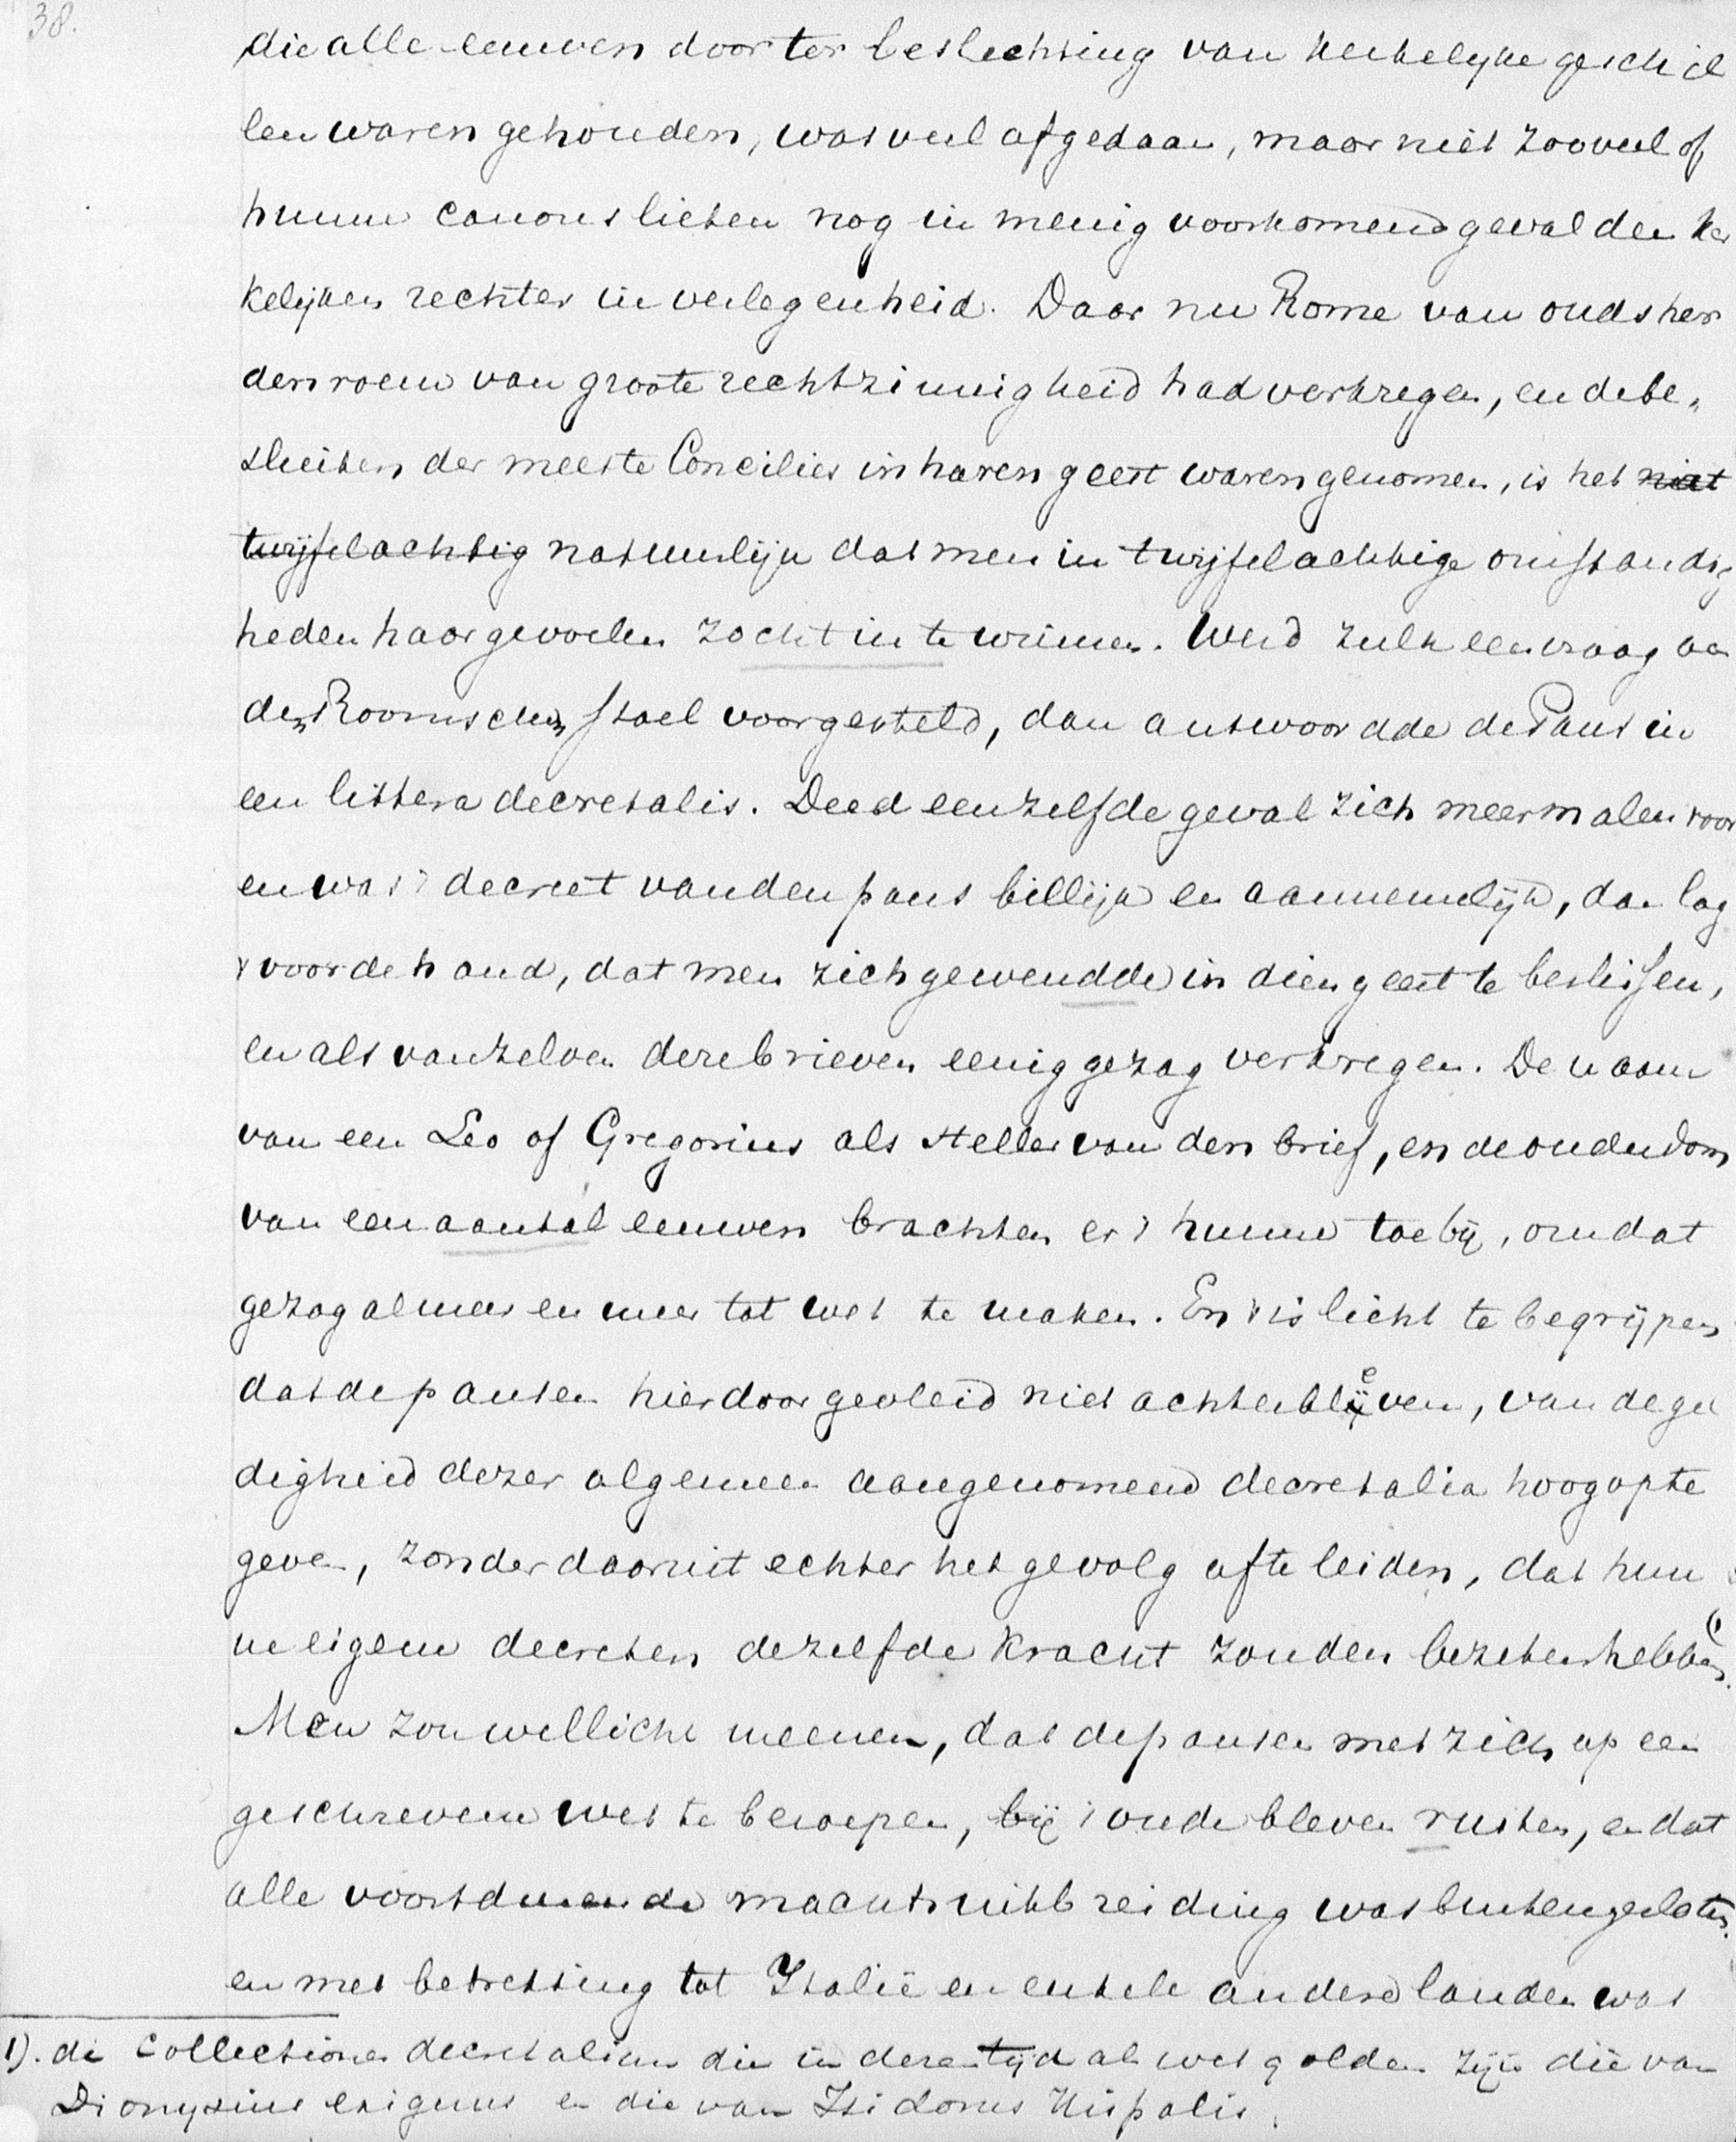 38.
die alle eeuwen door ter beslechting van kerkelyke geschil
len waren gehouden, was veel afgedaan, maar niet zooveel of
hunne canons lieten nog in menig voorkomend geval den ker
kelijken rechter in verlegenheid. Daar nu Rome van oudsher
den roem van groote rechtzinnigheid had verkregen, en de be„
sluiten der meeste Concilies in haren geest waren genomen, is het niet
twijfelachtig natuurlijk dat men in twijfelachtige omstandig
heden haar gevoelen zocht in te winnen. Werd zulk een vraag aan
den Roomschen stoel voorgesteld, dan antwoordde de Paus in
een littera decretalis. Deed eenzelfde geval zich meermalen voor
en was 't decreet van den paus billijk en aannemelijk, dan lag
't voor de hand, dat men zich gewendde in dien geest te beslissen,
en als vanzelven deze brieven eenig gezag verkregen. De naam
van een Leo of Gregorius als steller van den brief, en de ouderdom
van een aantal eeuwen brachten er 't hunne toe bij, om dat
gezag al meer en meer tot wet te maken. En 't is licht te begrijpen
dat de pausen hierdoor gevleid niet achterbleven, van de gel
digheid dezer algemeen aangenomene decretalia hoog op te
geven, zonder daaruit echter het gevolg af te leiden, dat hun
ne eigene decreten dezelfde kracht zouden bezeten hebben.
Men zou wellicht meenen, dat de pausen met zich op een
geschrevene wet te beroepen, bij 't oude bleven rusten, en dat
alle voortdurende machtsuitbreiding was buitengesloten.
en met betrekking tot Italië en enkele andere landen was
1). de Collectiones decretalium die in deze tijd als wet golden zijn die van
Dionysius exiguus en die van Isidorus Hispalis.